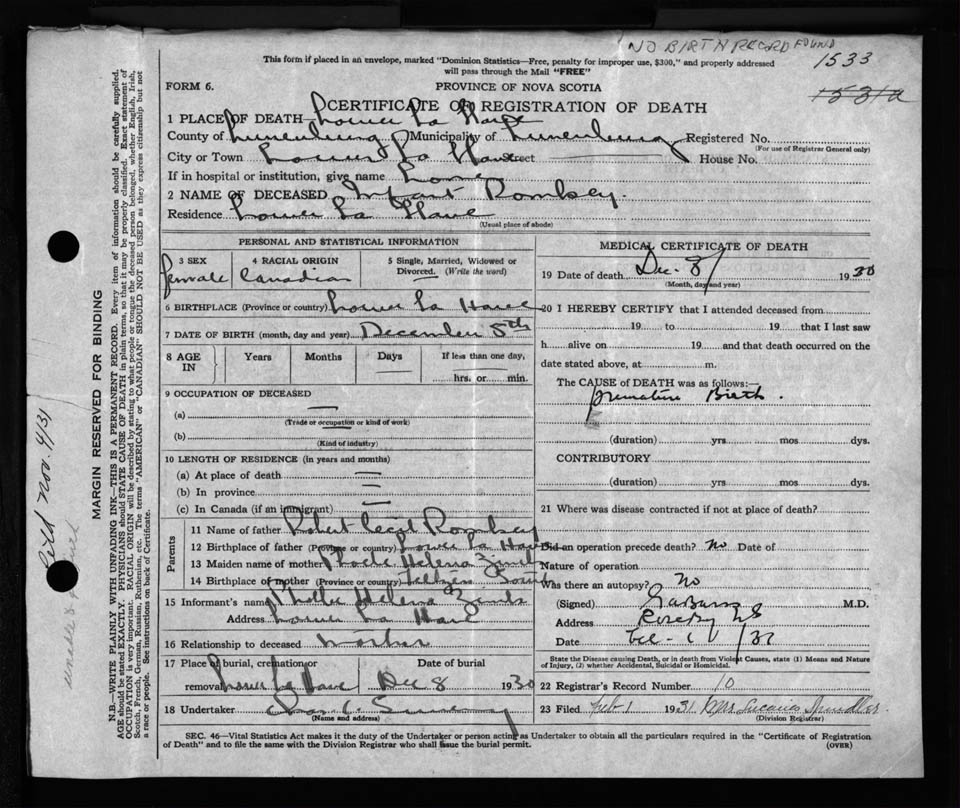 NO BIRTH RECORD FOUND
1533
This form if placed in an envelope, marked "Dominion Statistics—Free, penalty for improper use, $300," and properly addressed
will pass through the Mail "FREE"
FORM 6.
PROVINCE OF NOVA SCOTIA
CERTIFICATE OF REGISTRATION OF DEATH
1 PLACE OF DEATH— Lower La Have
County of Lunenburg Municipality of Lunenburg Registered No.
(For use of Registrar General only)
City or Town Lower La Have Street House No.
If in hospital or institution, give name home
2 NAME OF DECEASED Infant Romkey.
Residence Lower La Have
(Usual place of abode)
PERSONAL AND STATISTICAL INFORMATION
3 SEX
female
4 RACIAL ORIGIN
Canadian
5 Single, Married, Widowed or
Divorced. (Write the word)
6 BIRTHPLACE (Province or country) Lower La Have
7 DATE OF BIRTH (month, day and year) December 8th
8 AGE
IN
Years Months Days If less than one day,
hrs. or min.
9 OCCUPATION OF DECEASED
(a)
(Trade or occupation or kind of work)
(b)
(Kind of industry)
10 LENGTH OF RESIDENCE (in years and months)
(a) At place of death
(b) In province
(c) In Canada (if an immigrant)
Parents
11 Name of father Robert Romkey
12 Birthplace of father (Province or country) Lower La Have
13 Maiden name of mother Helena
14 Birthplace of mother (Province or country)
15 Informant's name Helena
Address Lower La Have
16 Relationship to deceased mother
17 Place of burial, cremation or
removal Lower La Have
Date of burial
Dec 8 1930
18 Undertaker
(Name and address)
MEDICAL CERTIFICATE OF DEATH
19 Date of death Dec. 8 1930
(Month, day and year)
20 I HEREBY CERTIFY that I attended deceased from
19 to 19 that I last saw
h alive on 19 and that death occurred on the
date stated above, at m.
The CAUSE of DEATH was as follows:—
Premature Birth.
(duration) yrs mos dys.
CONTRIBUTORY
(duration) yrs mos dys.
21 Where was disease contracted if not at place of death?
Did an operation precede death? No Date of
Nature of operation
Was there an autopsy? No
(Signed) M.D.
Address Rose Bay NS
Date
State the Disease causing Death, or in death from Violent Causes, state (1) Means and Nature
of Injury, (2) whether Accidental, Suicidal or Homicidal.
22 Registrar's Record Number 10
23 Filed Feb 1 1931 Mrs Spindler
(Division Registrar)
SEC. 46—Vital Statistics Act makes it the duty of the Undertaker or person acting as Undertaker to obtain all the particulars required in the "Certificate of Registration
of Death" and to file the same with the Division Registrar who shall issue the burial permit.
(OVER)
MARGIN RESERVED FOR BINDING
N.B.—WRITE PLAINLY WITH UNFADING INK—THIS IS A PERMANENT RECORD. Every item of information should be carefully supplied.
AGE should be stated EXACTLY. PHYSICIANS should STATE CAUSE OF DEATH in plain terms, so that it may be properly classified. Exact statement of
OCCUPATION is very important. RACIAL ORIGIN will be described by stating to what people or tongue the deceased person belonged, whether English, Irish,
Scotch, French, German, Russian, Ruthenian, etc. The terms "AMERICAN" or "CANADIAN" SHOULD NOT BE USED as they express citizenship but not
a race or people. See instructions on back of Certificate.